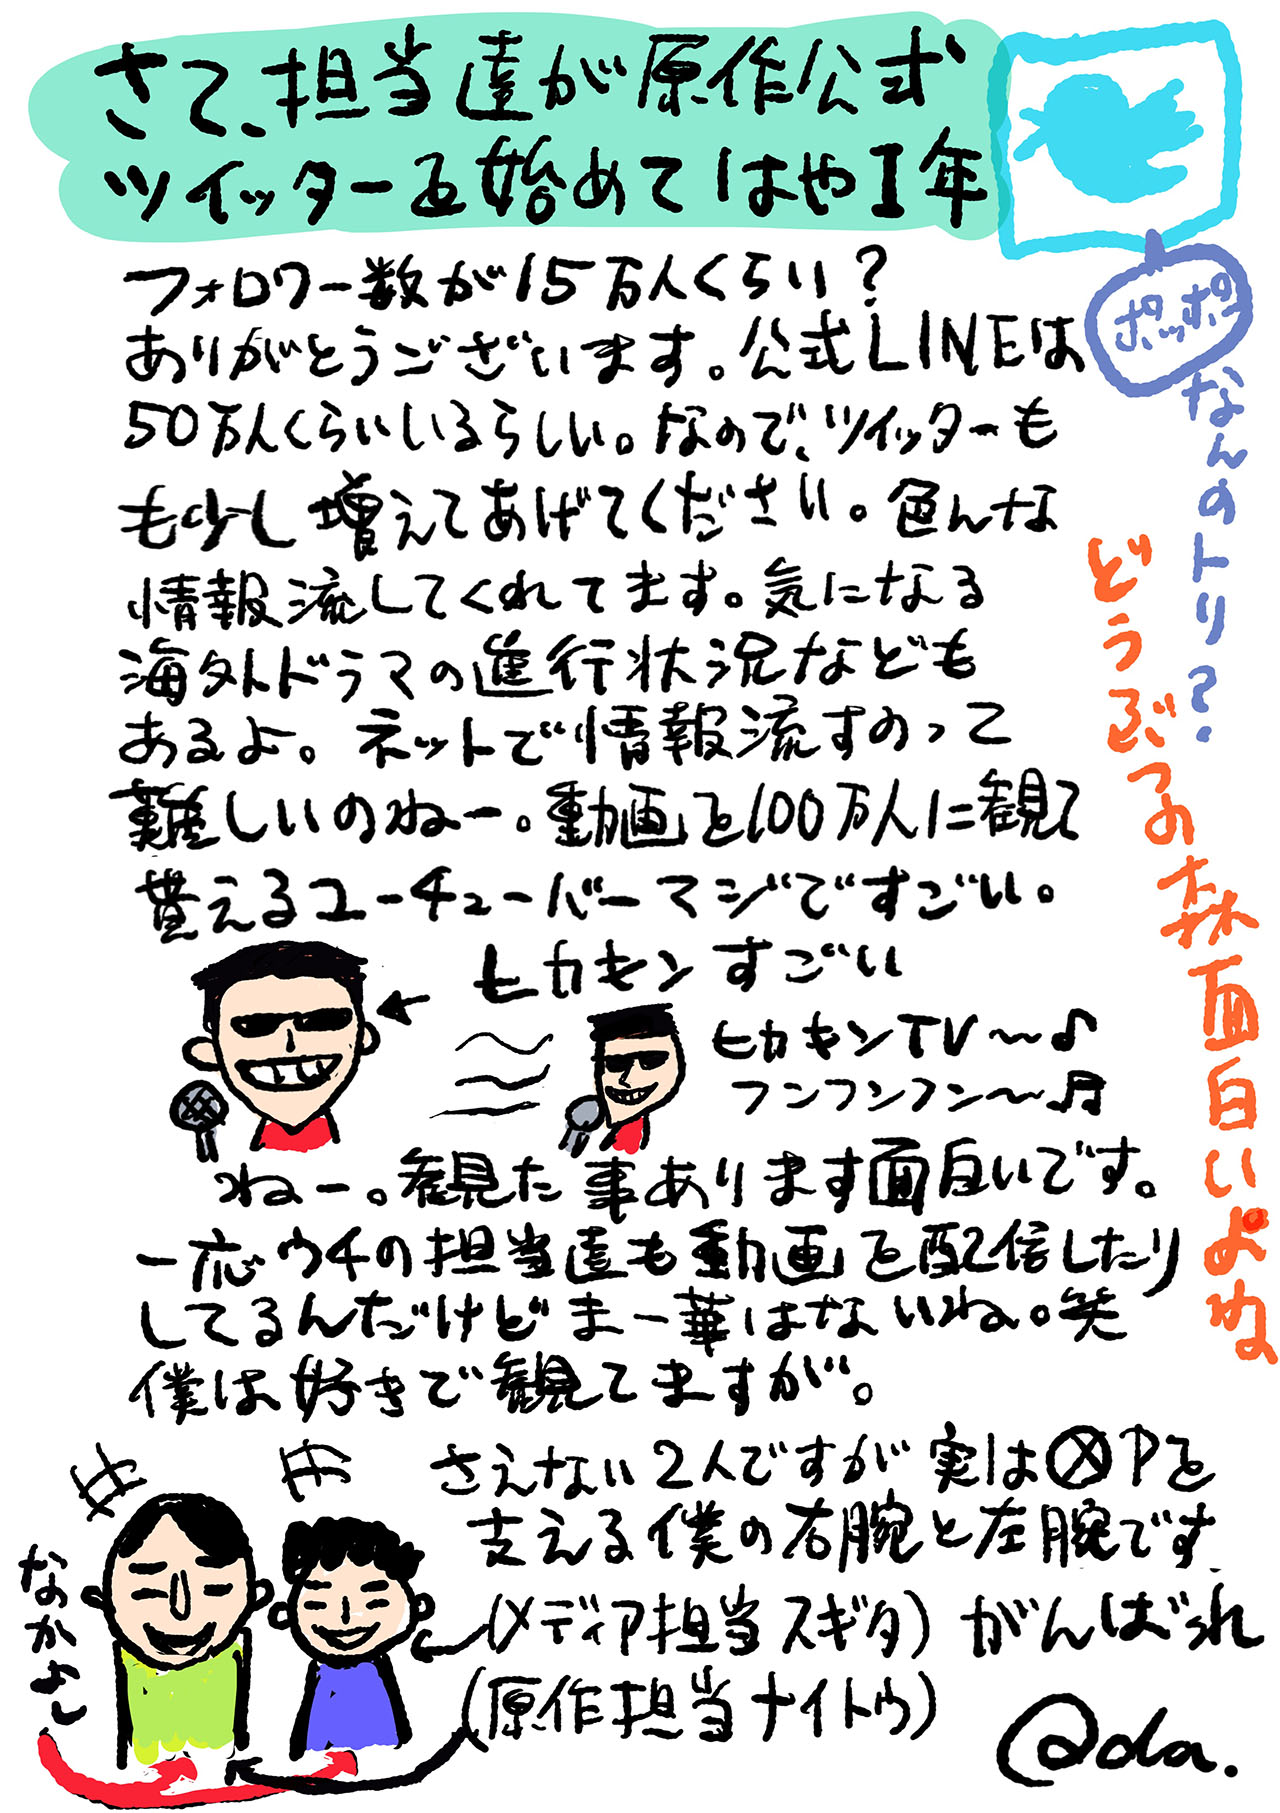 さて、担当達が原作公式
ツイッターを始めてはや1年
フォロワー数が15万人くらい？
ありがとうございます。公式LINEは
50万人くらいいるらしい。なので、ツイッターも
も少し増えてあげてください。色んな
情報流してくれてます。気になる
海外ドラマの進行状況なども
あるよ。ネットで情報流すのって
難しいのねー。動画を100万人に観て
貰えるユーチューバーマジですごい。
ヒカキンすごい
ヒカキンTV〜♪
フンフンフン〜♬
ねー。観た事あります面白いです。
一応ウチの担当達も動画を配信したり
してるんだけどまー華はないね。笑
僕は好きで観てますが。
さえない2人ですが実はⓍPを
支える僕の右腕と左腕です
(メディア担当スギタ)がんばれ
(原作担当ナイトウ)
なかよし
ポッポー
なんのトリ?
どうぶつの森面白いよね
@da.